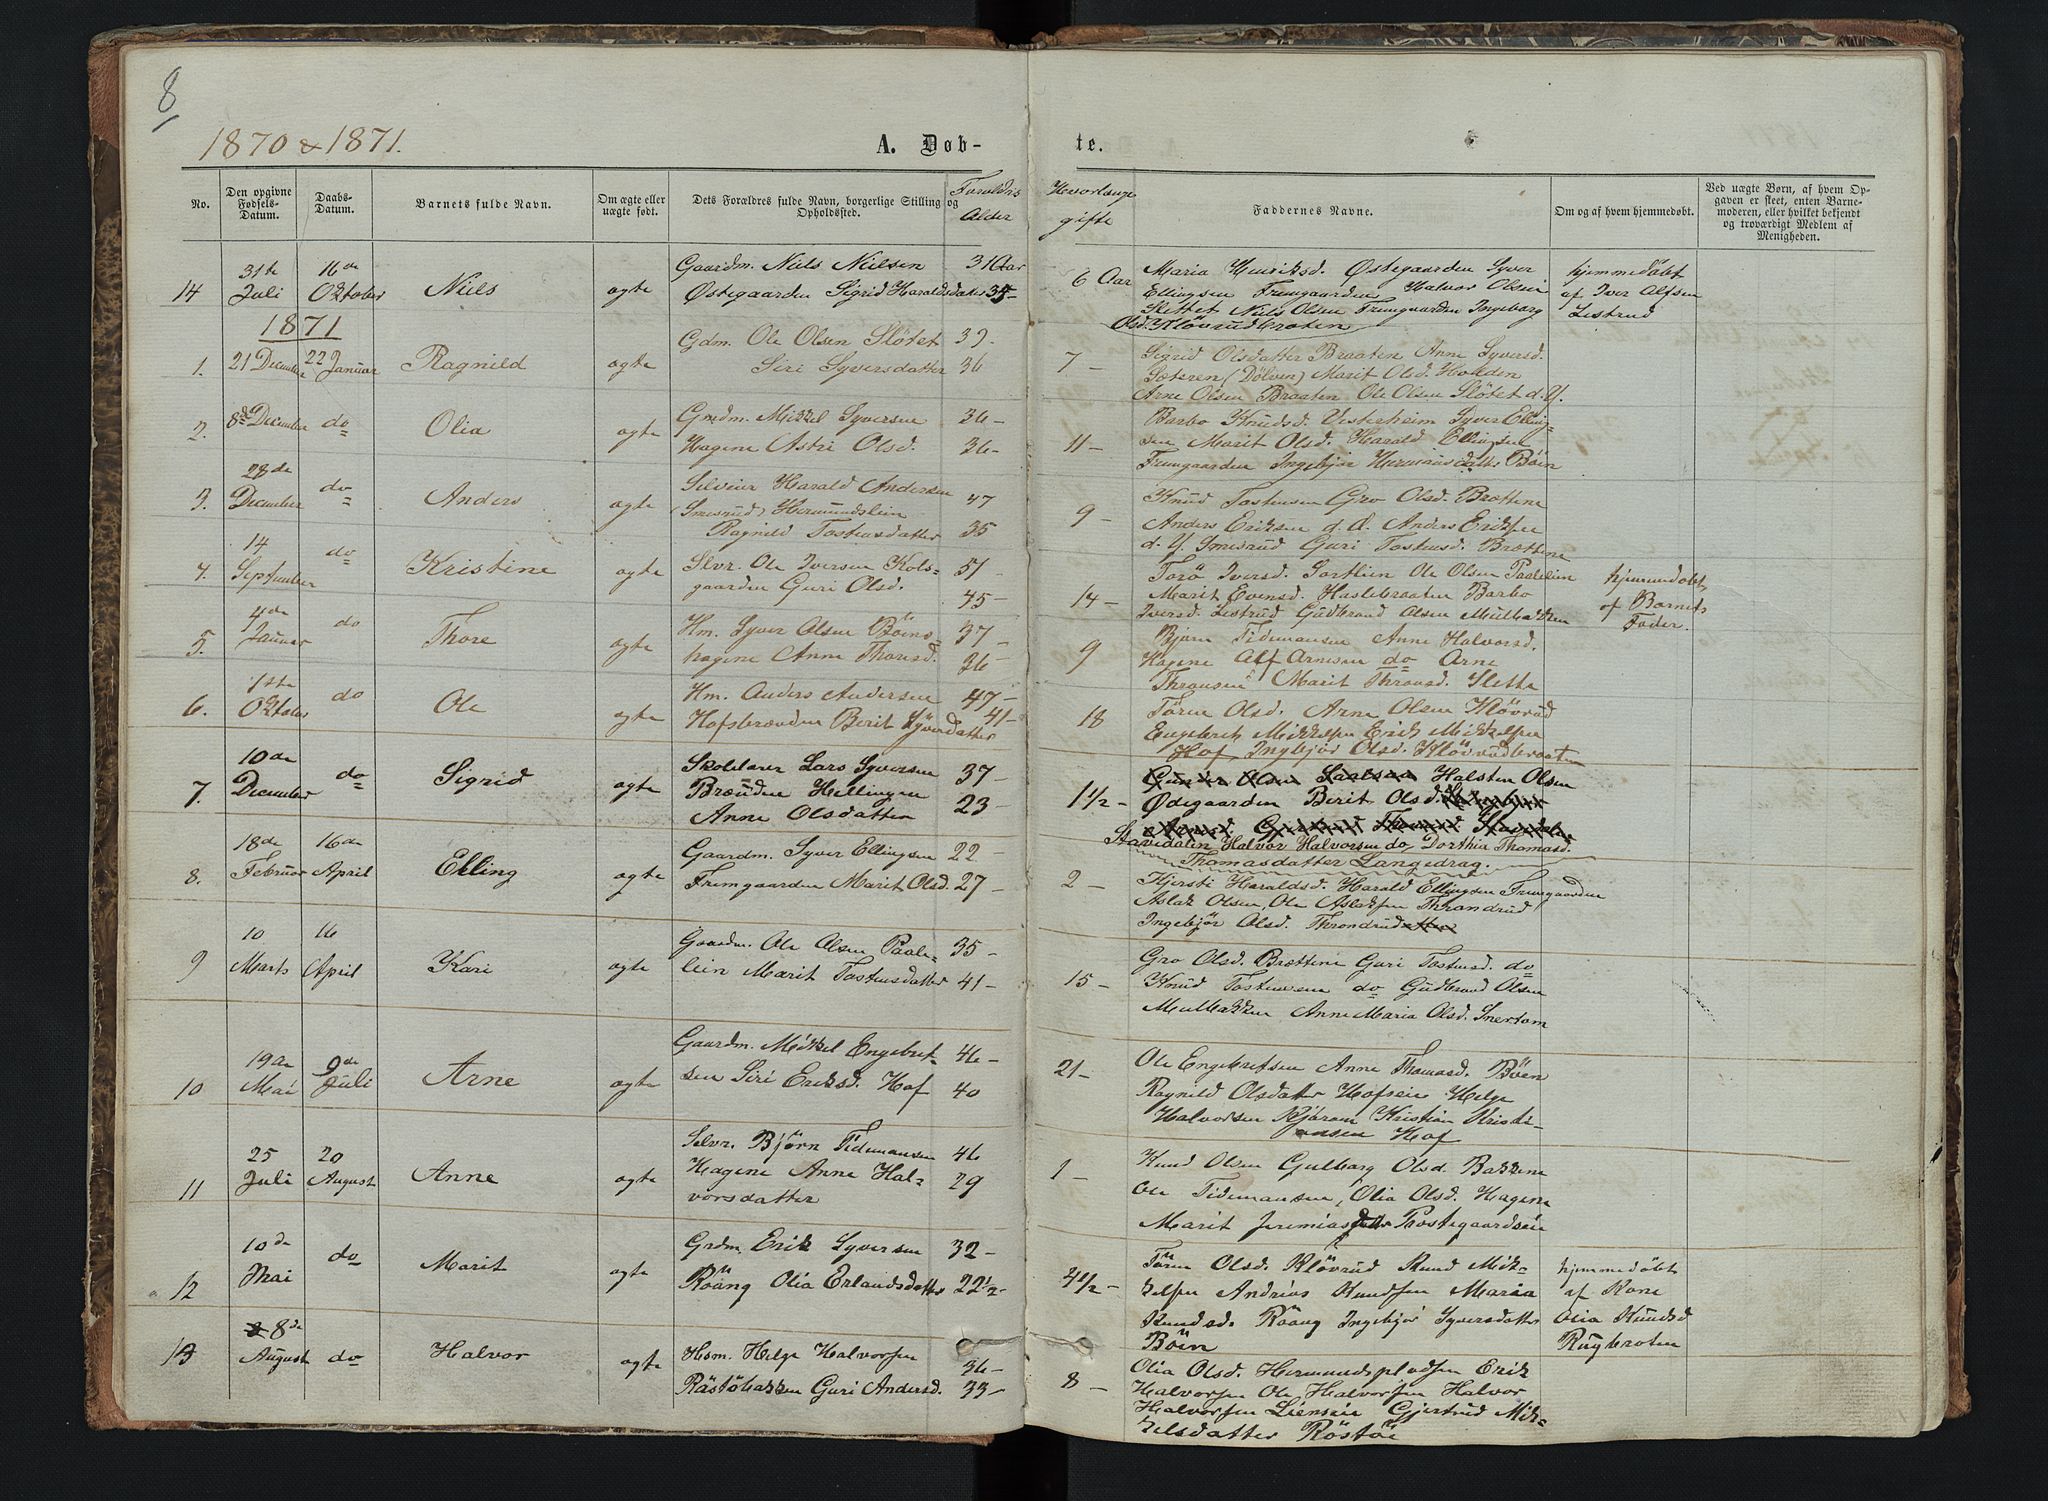 8
1870 & 1871.
A. Døb-
te.
No.
Den opgivne Fødsels-Datum.
Daabs-Datum.
Barnets fulde Navn.
Om ægte eller uægte født.
Dets Forældres fulde Navn, borgerlige Stilling og Opholdssted.
Foreldres Alder
Hvorlænge gifte
Faddernes Navne.
Om og af hvem hjemmedøbt.
Ved uægte Børn, af hvem Op-
gaven er skeet, enten Barne-
moderen, eller hvilket bekjendt
og troværdigt Medlem af
Menigheden.
14 31te Juli 16de Oktober Niels ægte
Gaardm. Niels Nielsen 31 Aar
Østegaarden Sigrid Haraldsdatter 35-
6 Aar
Maria Henriksd. Østegaarden Syver
Ellingsen Fremgaarden Halvor Olsen
Slettet Niels Olsen Fremgaarden Ingeborg
Olsd. Kløvrudbroten
hjemmedöbt
af Iver Alfsen
Listrud
1871
1. 21 December 22 Januar Ragnild ægte
Gdm. Ole Olsen Slötet 39-
Siri Syversdatter 36
7 -
Sigrid Olsdatter Braaten Anne Syversd.
Sæteren (Dölven) Marit Olsd. Hougen
Arne Olsen Braaten Ole Olsen Slötet d. Y.
2. 8de December do Olia ægte
Grdm. Mikkel Syversen 36-
Hagene Astri Olsd. 36-
11 -
Barbo Knudsd. Vesterheim Syver Elling-
sen Marit Olsd. Harald Ellingsen
Fremgaarden Ingebjör Hermundsdatter Böin
3. 28de December do Anders ægte
Selveier Harald Andersen 47
(Smesrud) Hermundslien
Ragnild Tostensdatter 35
9 -
Knud Tostensen Gro Olsd. Brættene
Anders Eriksen d. Æ. Anders Eriksen
d. Y. Smesrud Guri Tostensd. Brættene
4. 14 September do Kristine ægte
Slvr. Ole Iversen Kols- 51-
gaarden Guri Olsd. 45-
14 -
Torö Iversd. Sortlien Ole Olsen Paalelien
Marit Evensd. Haslebraaten Barbo
Iversd. Listrud Gudbrand Olsen Mulbakken
hjemmedöbt
af Barnets
Fader.
5. 4de Januar do Thore ægte
Hm. Syver Olsen Böens- 37-
hagene Anne Thoresd. 36-
9
Björn Tidemansen Anne Halvorsd.
Hagene Alf Arnesen do Arne
Thronsen Marit Thronsd. Slette
6. 1ste Oktober do Ole ægte
Hm. Anders Andersen 47-
Hofsbrænden Berit Syversdatter 41-
18
Tören Olsd. Arne Olsen Klövrud
Engebret Mikkelsen Erik Mikkelsen
Hof Ingebjör Olsd. Klövrudbraaten
7. 10de December do Sigrid ægte
Skolelærer Lars Syversen 37-
Brænden Hellingen 23-
Anne Olsdatter
1 1/2 -
Halsten Olsen
Ødegaarden Berit Olsd.
Stavedalen Halvor Halvorsen do Dorthia Thomasd.
Thomasdatter Langedrag.
8. 18de Februar 16de April Elling ægte
Gaardm. Syver Ellingsen 22-
Fremgaarden Marit Olsd. 27-
2 -
Kjersti Haraldsd. Harald Ellingsen Fremgaarden
Aslak Olsen, Ole Aslaksen Throndrud
Ingebjör Olsd. Throndrud
9 10 Marts 16 April Kari ægte
Gaardm. Ole Olsen Paale- 35-
lien Marit Tostensdatter 41-
15 -
Gro Olsd. Brættene Guri Tostensd. do
Knud Tostensen do Gudbrand Olsen
Mulbakken Anne Maria Olsd. Snertom
10 19de Mai 9de Juli Arne ægte
Gaardm. Mikkel Engebret- 46-
sen Siri Eriksd. Hof 40
21 -
Ole Engebretsen Anne Thomasd. Böen
Ragnild Olsdatter Hofseie Helge
Halvorsen Kristian Kristi-
ansen Hof
11 25 Juli 20 August Anne ægte
Selvr. Björn Tidemansen 46
Hagene Anne Hal- 29
vorsdatter
1 -
Knud Olsen Gulbarg Olsd. Bakkene
Ole Tidemansen, Olia Olsd. Hagene
Marit Jeremiasdatter Prostegaardseie
12 10de Mai do Marit ægte
Grdm. Erik Syversen 32-
Röang Olia Erlandsdatter 22 1/2-
4 1/2 -
Tören Olsd. Klövrud Knud Mik-
kelsen Andrias Knudsen Maria
Knudsd. Röang Ingebjör Syversdatter
Böin
hjemmedöbt
af Kone
Olia Knudsd
Rugbroten
13 8de August do Halvor ægte
Hsm. Helge Halvorsen 36-
Röstöbakken Guri Andersd. 33-
8 -
Olia Olsd. Hermundspladsen Erik
Halvorsen Ole Halvorsen Halvor
Halvorsen Lienseie Gjertrud Mik-
kelsdatter Röstöe